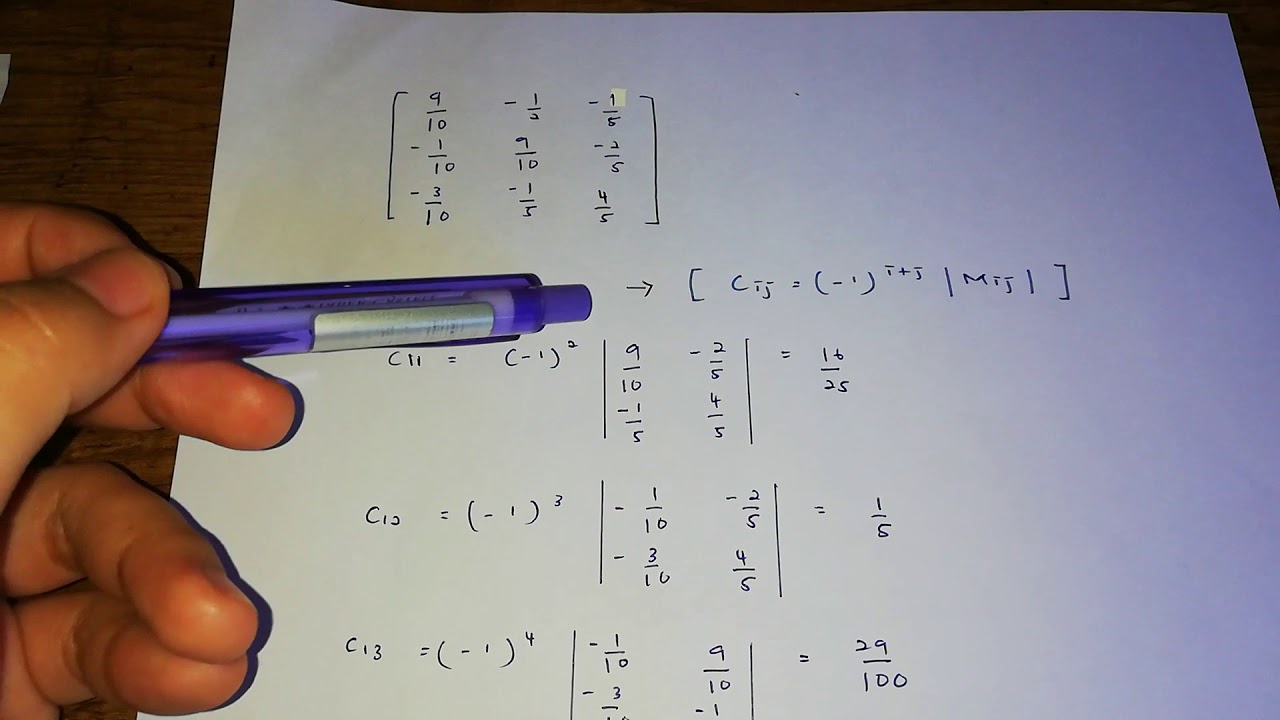 [ 9/10 - 1/2 - 1/5
- 1/10 9/10 - 2/5
- 3/10 - 1/5 4/5 ]
→ [ Cij = (-1)^i+j |Mij| ]
C11 = (-1)^2 | 9/10 - 2/5 | = 16/25
| - 1/5 4/5 |
C12 = (-1)^3 | - 1/10 - 2/5 | = 1/5
| - 3/10 4/5 |
C13 = (-1)^4 | - 1/10 9/10 | = 29/100
- 3/10 - 1